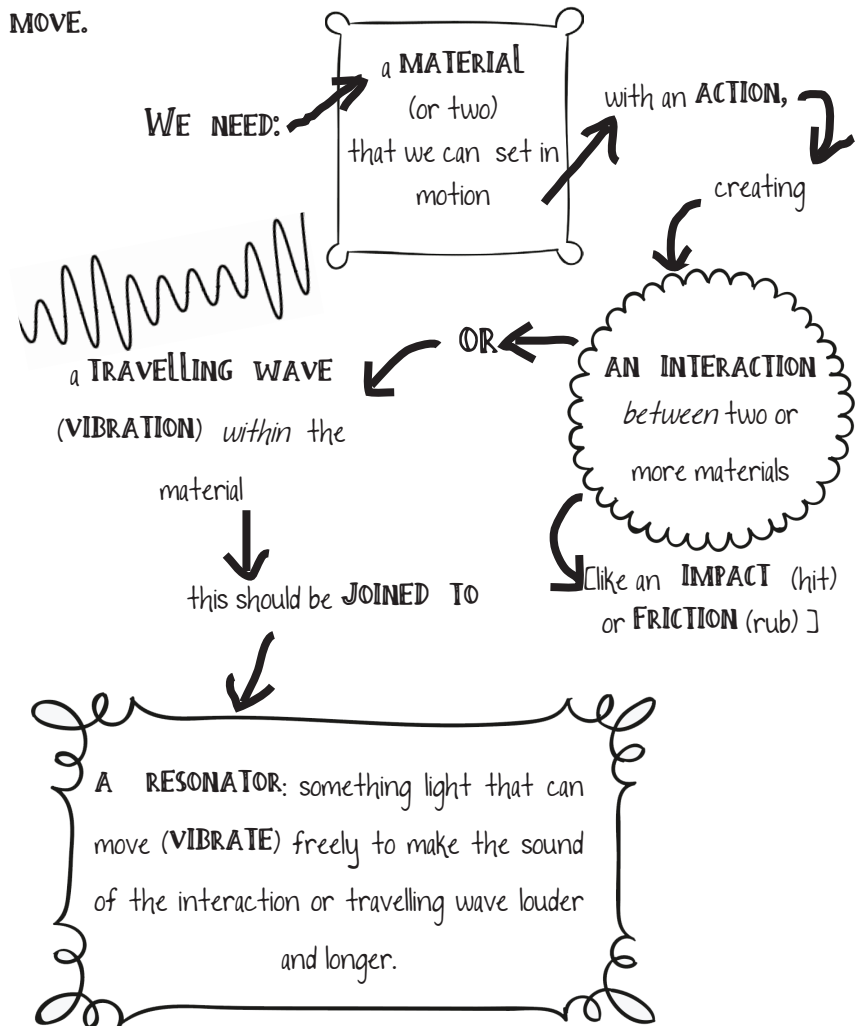 MOVE.
WE NEED:
a MATERIAL
(or two)
that we can set in
motion
with an ACTION,
creating
AN INTERACTION
between two or
more materials
[like an IMPACT (hit)
or FRICTION (rub) ]
OR
a TRAVELLING WAVE
(VIBRATION) within the
material
this should be JOINED TO
A RESONATOR: something light that can
move (VIBRATE) freely to make the sound
of the interaction or travelling wave louder
and longer.